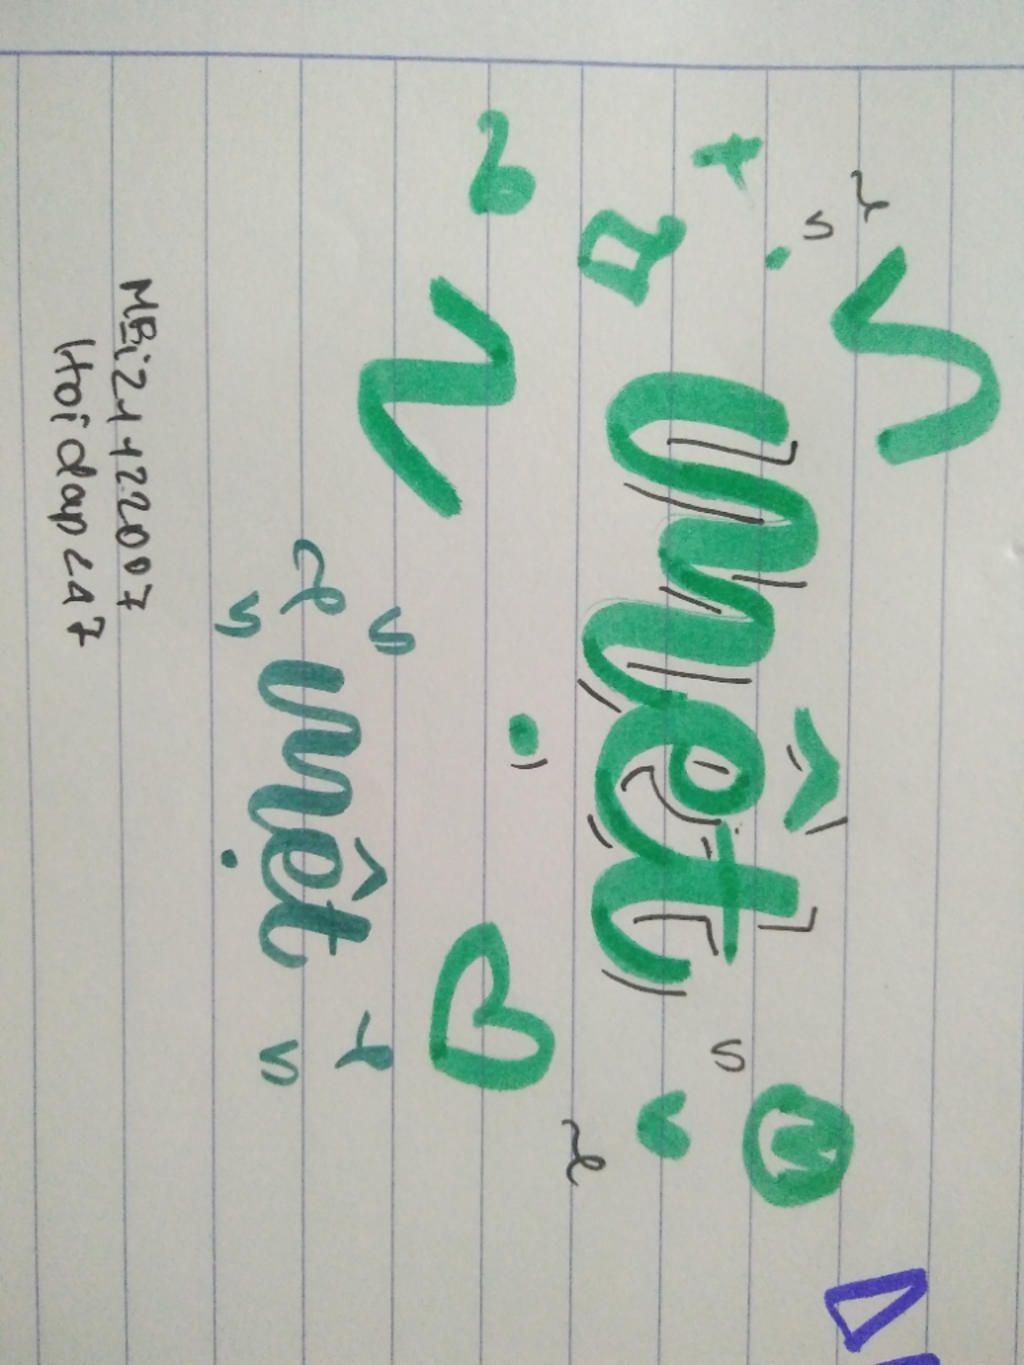 mệt
mệt
MBi21122007
Hoidap247